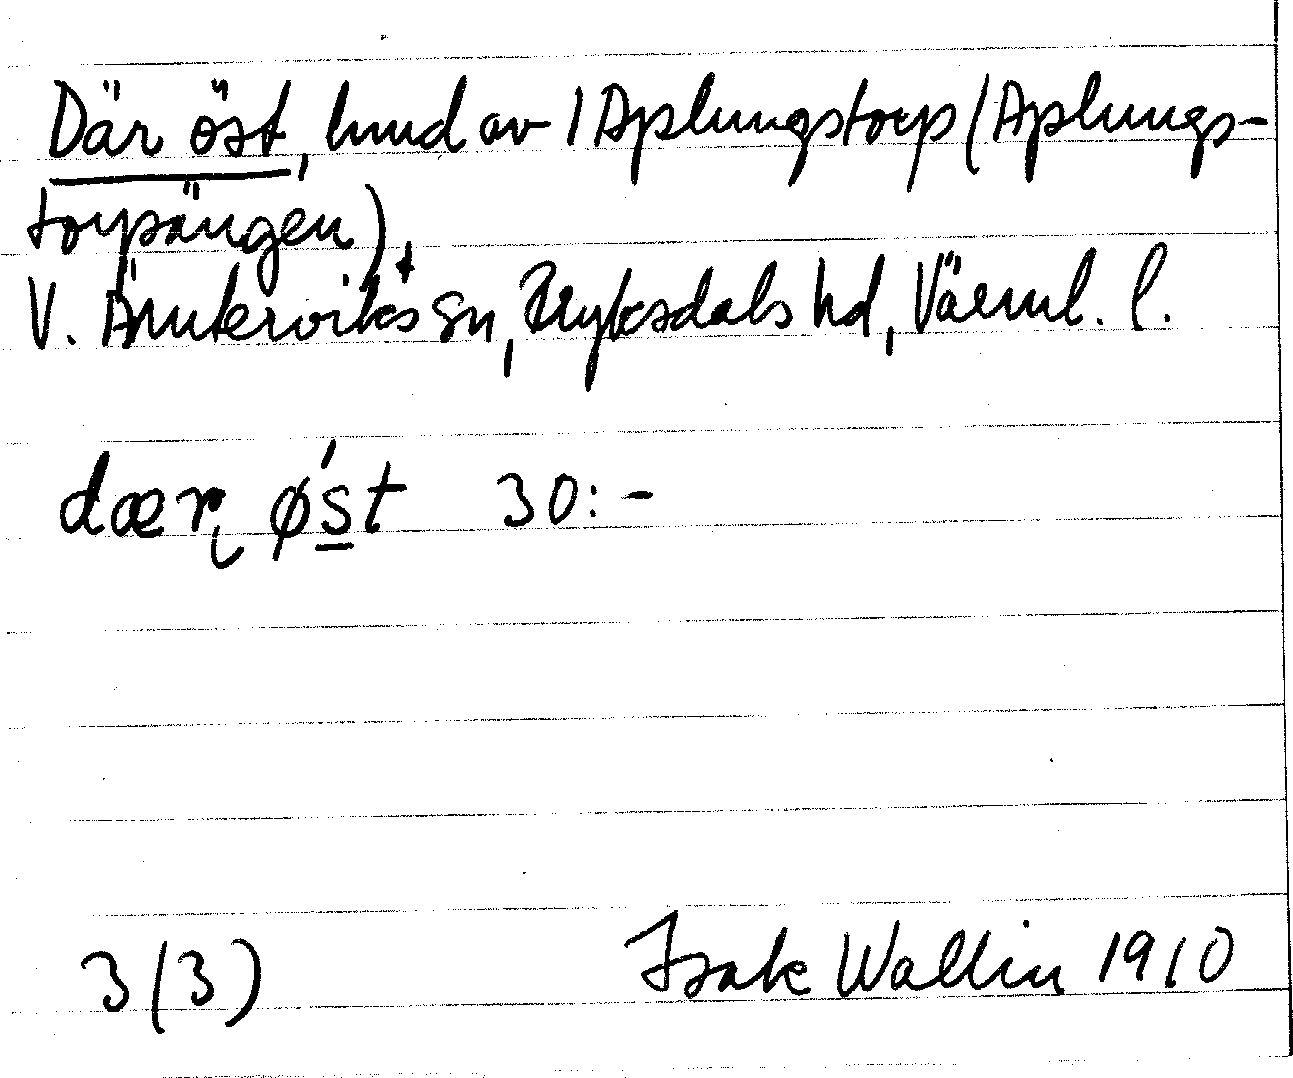 Där öst, hmd av 1 Aplungstorp (Aplungs-
torpängen),
V. Ämterviks sn, Fryksdals hd, Värml. l.
dær ǿs̲t 30:-
3 (3) Isak Wallin 1910